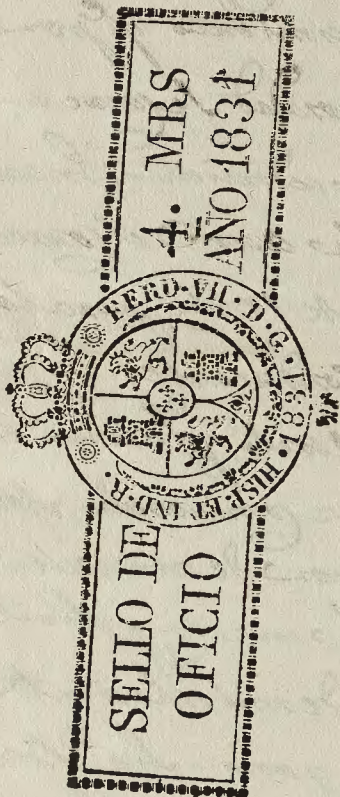 SELLO DE
OFICIO
FERD · VII · D · G · HISP · ET IND · R ·
1831
4. MRS
AÑO 1831